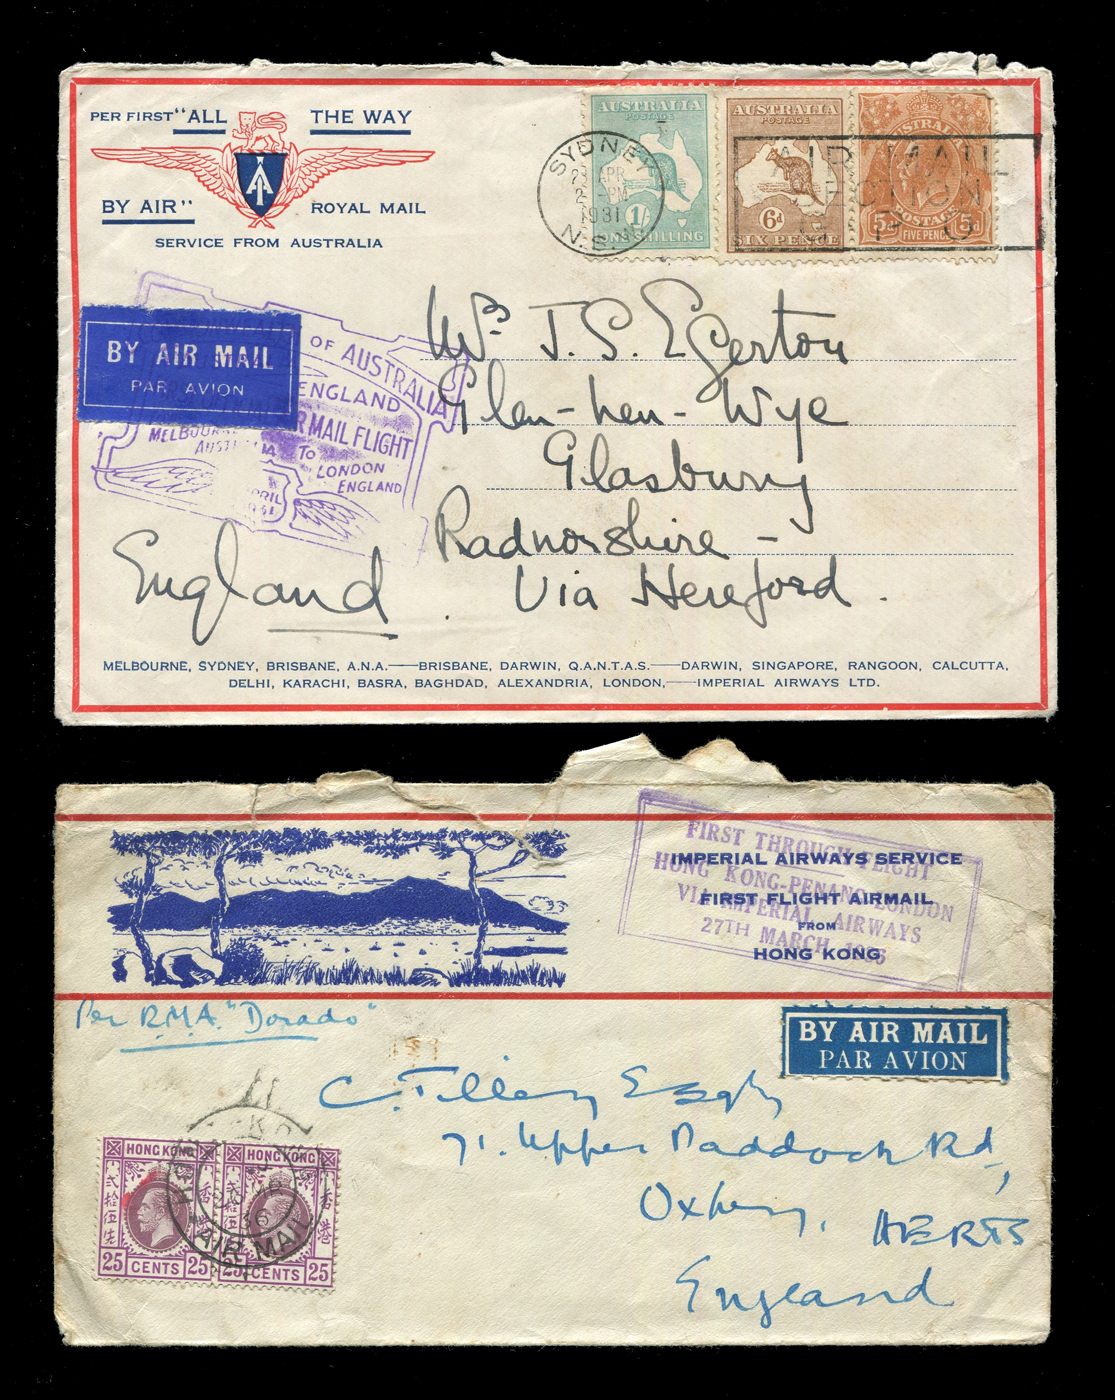 PER FIRST "ALL THE WAY
BY AIR" ROYAL MAIL
SERVICE FROM AUSTRALIA
AUSTRALIA
POSTAGE
1/-
ONE SHILLING
AUSTRALIA
POSTAGE
6d
SIX PENCE
AUSTRALIA
POSTAGE
5d FIVE PENCE 5d
SYDNEY
APR
PM
1931
N.S.W
AIR MAIL
BY AIR MAIL
PAR AVION
OF AUSTRALIA
ENGLAND
AIR MAIL FLIGHT
MELBOURNE
AUSTRALIA TO LONDON
ENGLAND
APRIL
1931
Mr. J. S. Egerton
Glen-hen-Wye
Glasbury
Radnorshire -
England. Via Hereford.
MELBOURNE, SYDNEY, BRISBANE, A.N.A.—BRISBANE, DARWIN, Q.A.N.T.A.S.—DARWIN, SINGAPORE, RANGOON, CALCUTTA,
DELHI, KARACHI, BASRA, BAGHDAD, ALEXANDRIA, LONDON,—IMPERIAL AIRWAYS LTD.
IMPERIAL AIRWAYS SERVICE
FIRST FLIGHT AIRMAIL
FROM
HONG KONG
FIRST THROUGH FLIGHT
HONG KONG-PENANG-LONDON
VIA IMPERIAL AIRWAYS
27TH MARCH, 1936
Per R.M.A. "Dorado"
BY AIR MAIL
PAR AVION
C. Tilley Esqr
71. Upper Paddock Rd,
Oxhey, HERTS
England
HONG KONG
貳拾伍先 香港
25 CENTS 25
HONG KONG
貳拾伍先 香港
25 CENTS 25
36
AIR MAIL